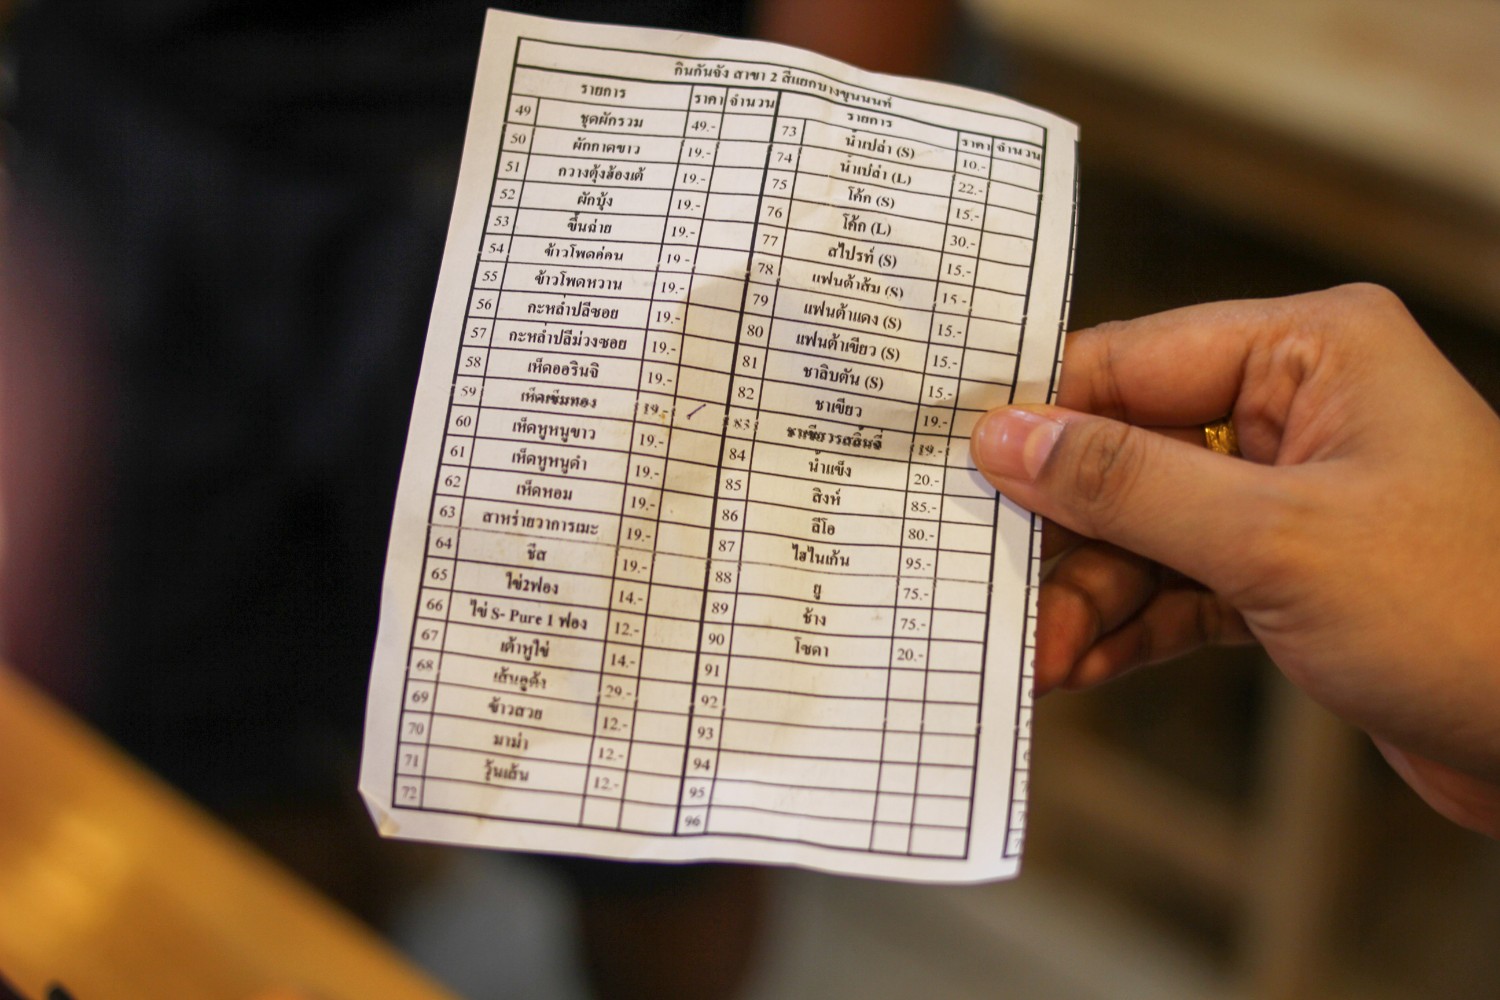 กินกันจัง สาขา 2 สี่แยกบางขุนนนท์
รายการ ราคา จำนวน
49 ชุดผักรวม 49.-
50 ผักกาดขาว 19.-
51 กวางตุ้งฮ่องเต้ 19.-
52 ผักบุ้ง 19.-
53 ขึ้นฉ่าย 19.-
54 ข้าวโพดอ่อน 19.-
55 ข้าวโพดหวาน 19.-
56 กะหล่ำปลีซอย 19.-
57 กะหล่ำปลีม่วงซอย 19.-
58 เห็ดออรินจิ 19.-
59 เห็ดเข็มทอง 19.-
60 เห็ดหูหนูขาว 19.-
61 เห็ดหูหนูดำ 19.-
62 เห็ดหอม 19.-
63 สาหร่ายวาการเมะ 19.-
64 ชีส 19.-
65 ไข่2ฟอง 14.-
66 ไข่ S- Pure 1 ฟอง 12.-
67 เต้าหู้ไข่ 14.-
68 เส้นอูด้ง 29.-
69 ข้าวสวย 12.-
70 มาม่า 12.-
71 วุ้นเส้น 12.-
72
รายการ ราคา จำนวน
73 น้ำเปล่า (S) 10.-
74 น้ำเปล่า (L) 22.-
75 โค้ก (S) 15.-
76 โค้ก (L) 30.-
77 สไปรท์ (S) 15.-
78 แฟนต้าส้ม (S) 15.-
79 แฟนต้าแดง (S) 15.-
80 แฟนต้าเขียว (S) 15.-
81 ชาลิบตัน (S) 15.-
82 ชาเขียว 19.-
83 ชาเขียวรสลิ้นจี่ 19.-
84 น้ำแข็ง 20.-
85 สิงห์ 85.-
86 ลีโอ 80.-
87 ไฮไนเก้น 95.-
88 ยู 75.-
89 ช้าง 75.-
90 โซดา 20.-
91
92
93
94
95
96